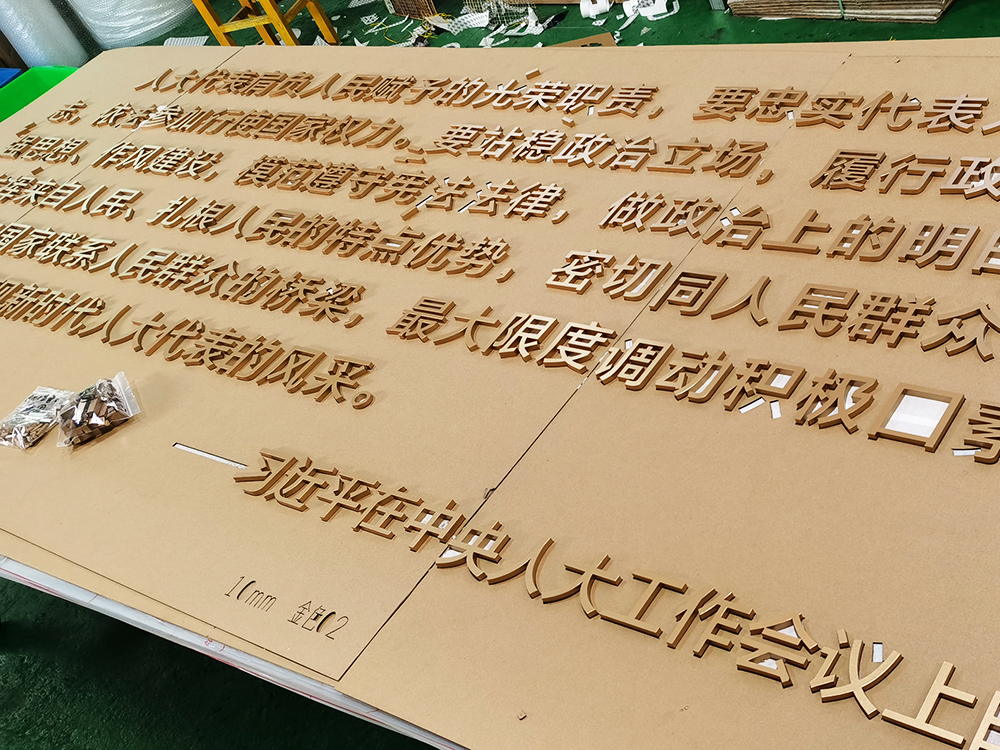 人大代表肩负人民赋予的光荣职责，要忠实代表人
志，依法参加行使国家权力。要站稳政治立场，履行政
思想、作风建设，模范遵守宪法法律，做政治上的明白
来自人民、扎根人民的特点优势，密切同人民群众
国家联系人民群众的桥梁，最大限度调动积极因素
新时代人大代表的风采。
——习近平在中央人大工作会议上
10mm 金色02